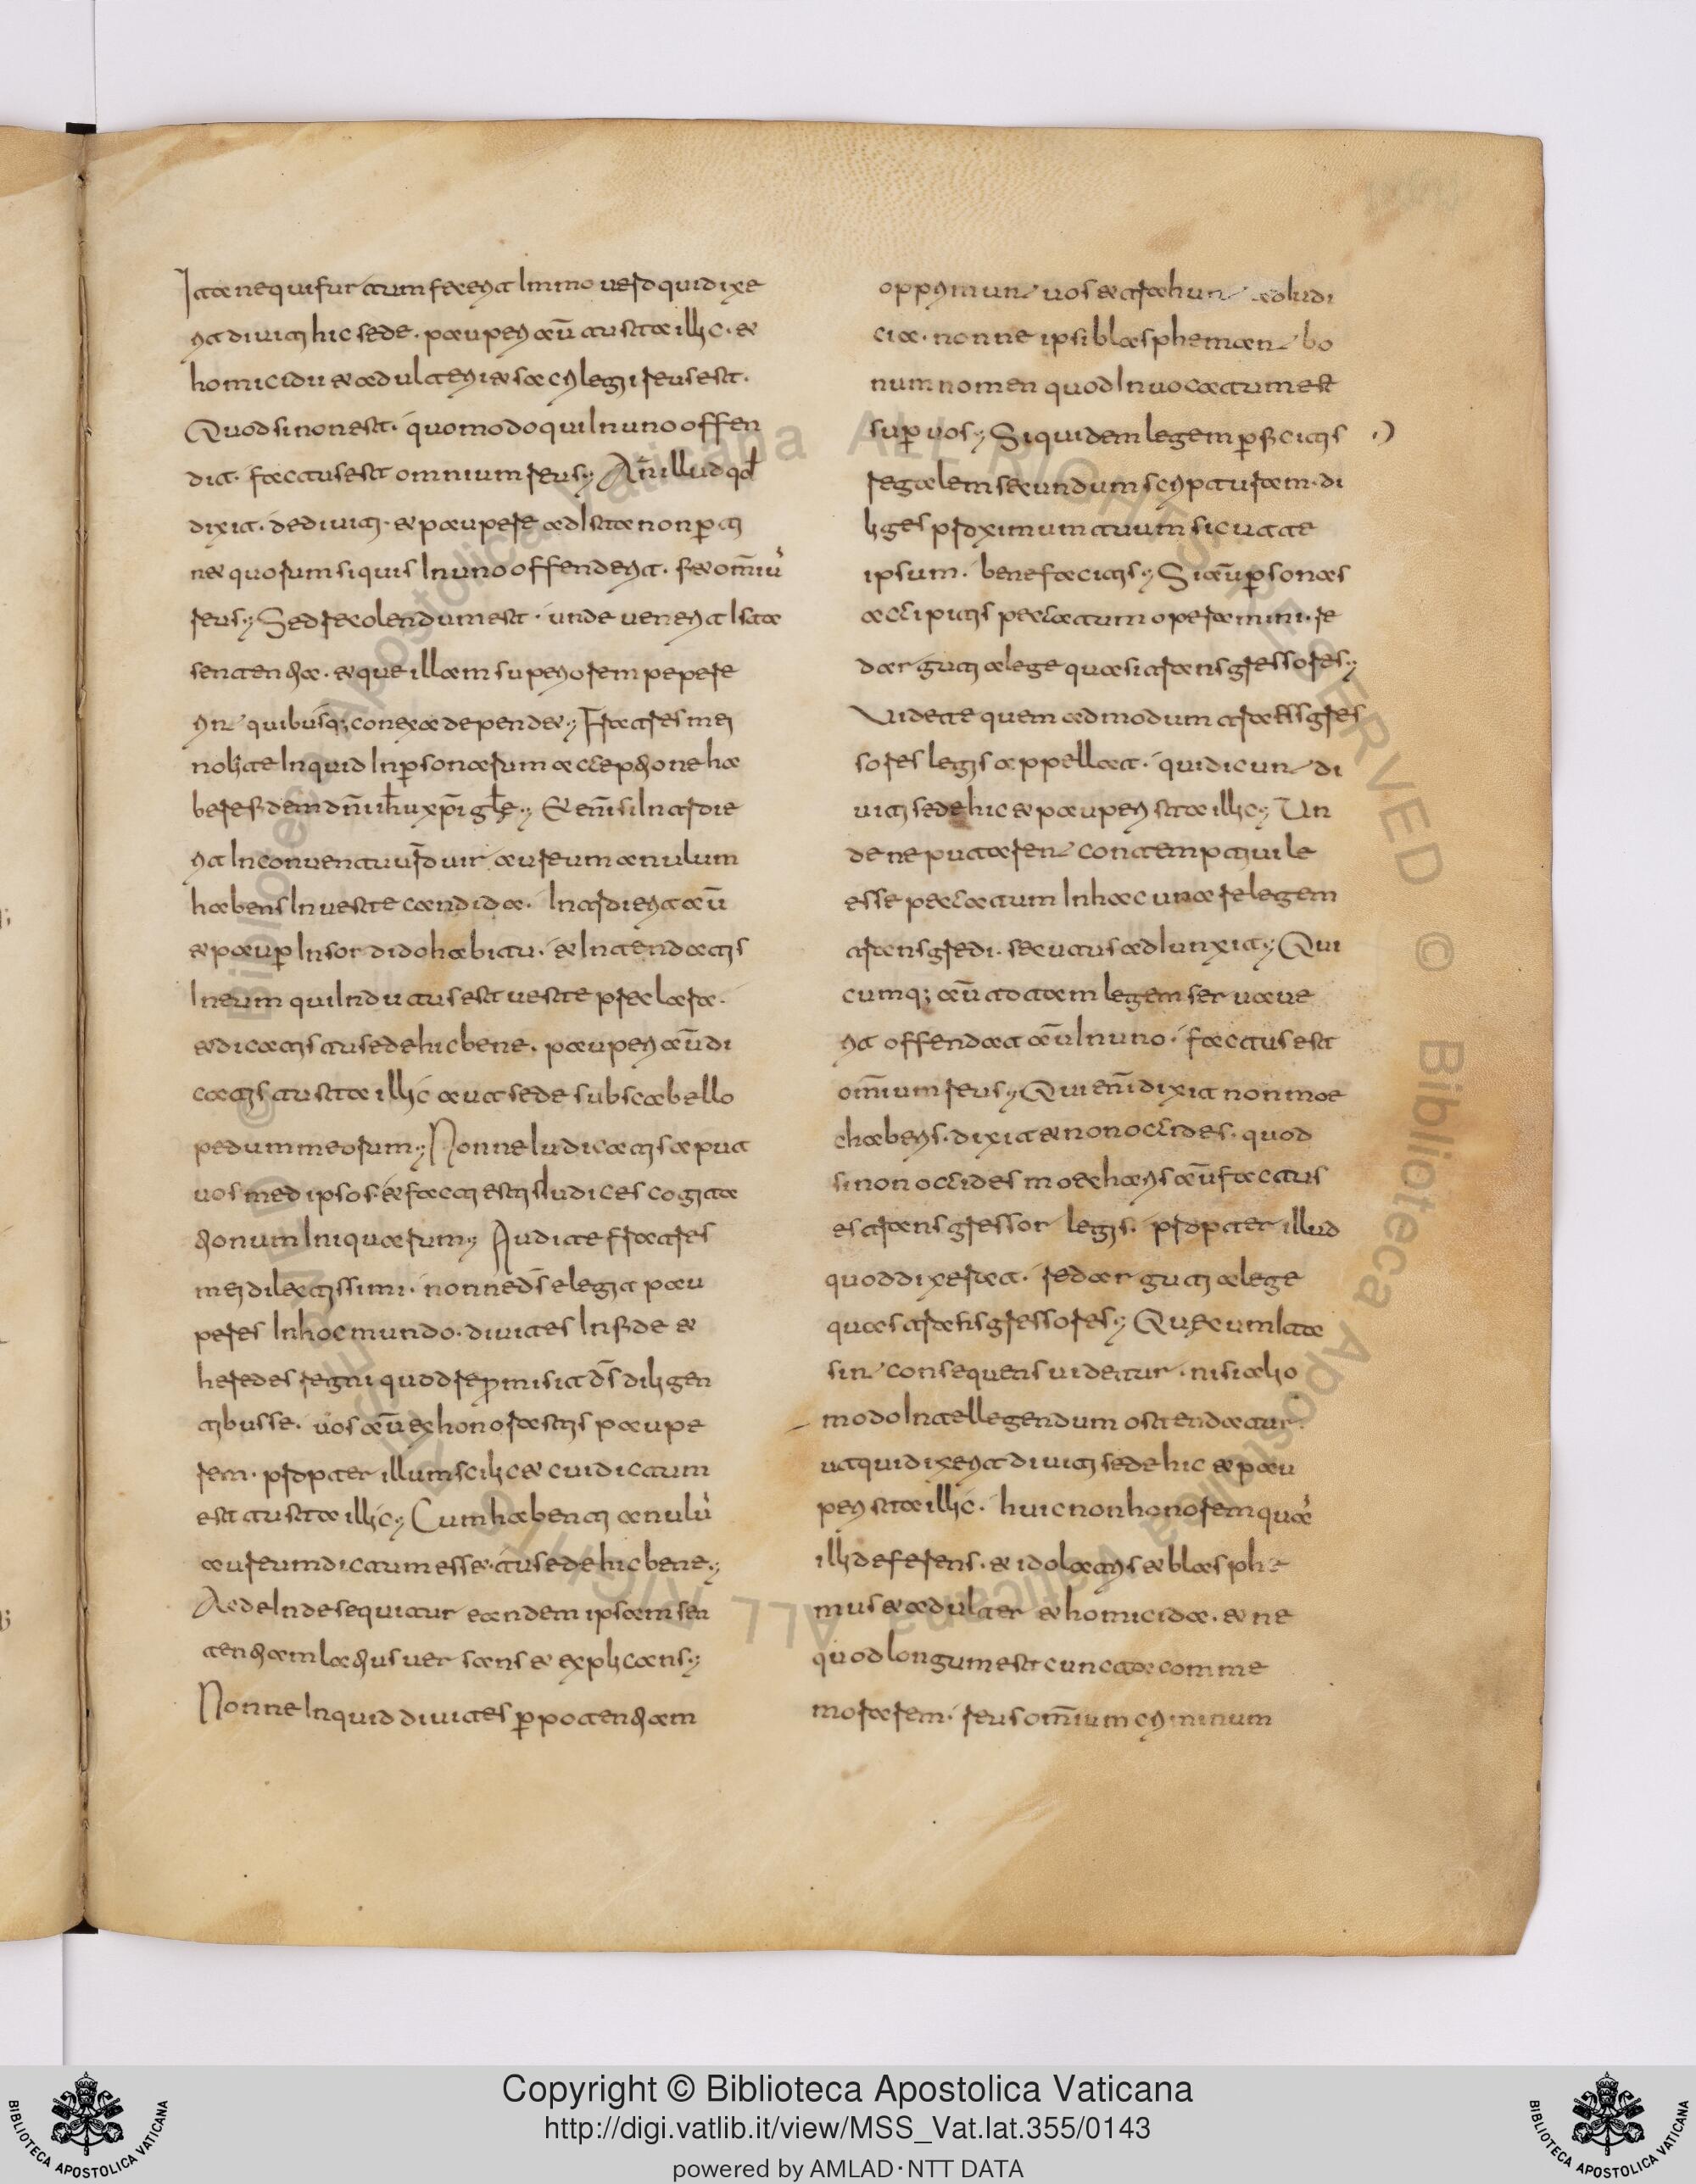 Ita nequi furtum fecerit Immo uero qui dixe
rit diuiti hic sede. pauperi aū tu sta illic. et
homicidii et adulterii et sacrilegii reus est.
Quod si non est. quomodo qui In uno offen
dit. factus est omnium reus; Aū illud qđ
dixit. de diuiti. et paupere ad Ista non p̄ti
net quorum si quis In uno offenderit. fiet om̄iū
reus; Sed recolendum est. unde uenerit Ista
sententia. et que illam superiorem pepere
rint quibusq; conexa dependet; Fratres mei
nolite Inquid In p̄sonarum acceptione ha
bere fidem dn̄i ih̄u xp̄i gl̄e; Et enī si Introie
rit In conuentu ur̄o uir aureum anulum
habens In ueste candida. Introierit aū
et paup̄ In sordido habitu. et Intendatis
In eum qui Indutus est ueste preclara.
et dicatis tu sede hic bene. pauperi aū di
catis tu sta illic aut sede sub scabello
pedum meorum; Nonne Iudicatis aput
uosmed ipsos. et facti estis Iudices cogita
tionum Iniquarum; Audite fratres
mei dilectissimi. nonne dš elegit pau
peres In hoc mundo. diuites In fide et
heredes regni quod repromisit dš diligen
tibus se. uos aū exhonorastis paupe
rem. propter illum scilicet cui dictum
est tu sta illic; Cum habenti anulū
aureum dictum esset. tu sede hic bene;
Ac deInde sequitur eandem ipsam sen
tentiam latius uersans et explicans;
Nonne Inquid diuites p̄ potentiam
opprimunt uos et trahunt ad Iudi
cia. nonne ipsi blasphemant bo
num nomen quod Inuocatum est
sup̄ uos; Si quidem legem p̄ficitis
regalem secundum scripturam. di
liges proximum tuum sicut te
ipsum. bene facitis; Si aū p̄sonas
accipitis peccatum operamini. re
darguti a lege quasi transgressores;
Videte quem ad modum transgres
sores legis appellat. qui dicunt di
uiti sede hic et pauperi sta illic; Un
de ne putarent contempti uile
esse peccatum In hac una re legem
transgredi. secutus adIunxit; Qui
cumq; aū totam legem seruaue
rit offendat aū In uno. factus est
om̄ium reus; Qui enī dixit non moe
chaberis. dixit et non occides. quod
si non occides moecharis aū factus
es transgressor legis. propter illud
quod dixerat. redarguti a lege
quasi transgressores; Que cum Ita
sint consequens uidetur. nisi alio
modo Intellegendum ostendatur.
ut qui dixerit diuiti sede hic et pau
peri sta illic. huic non honorem quā
illi deferens. et idolatris et blasphe
mus et adulter et homicida. et ne
quod longum est cuncta comme
morarem. reus om̄ium criminum
Copyright © Biblioteca Apostolica Vaticana
http://digi.vatlib.it/view/MSS_Vat.lat.355/0143
powered by AMLAD·NTT DATA
BIBLIOTECA APOSTOLICA VATICANA
BIBLIOTECA APOSTOLICA VATICANA